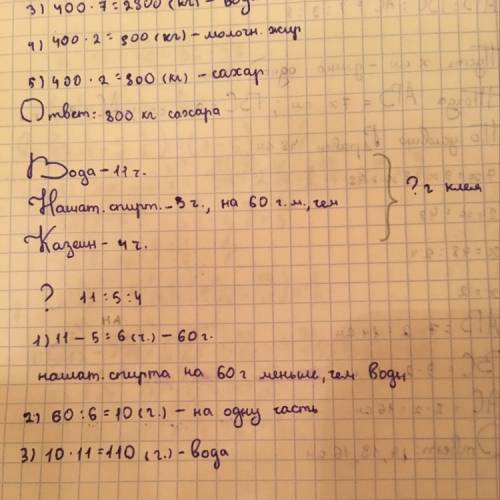 3) 400 · 7 = 2800 (кг) - вод
4) 400 · 2 = 800 (кг) - молочн. жир
5) 400 · 2 = 800 (кг) - сахар
Ответ: 800 кг сахара
Вода - 11 ч.
Нашат. спирт. - 5 ч., на 60 г. м., чем
Казеин - 4 ч.
? г клея
? 11 : 5 : 4
на
1) 11 - 5 = 6 (ч.) - 60 г.
нашат. спирта на 60 г меньше, чем воды
2) 60 : 6 = 10 (г.) - на одну часть
3) 10 · 11 = 110 (г.) - вода